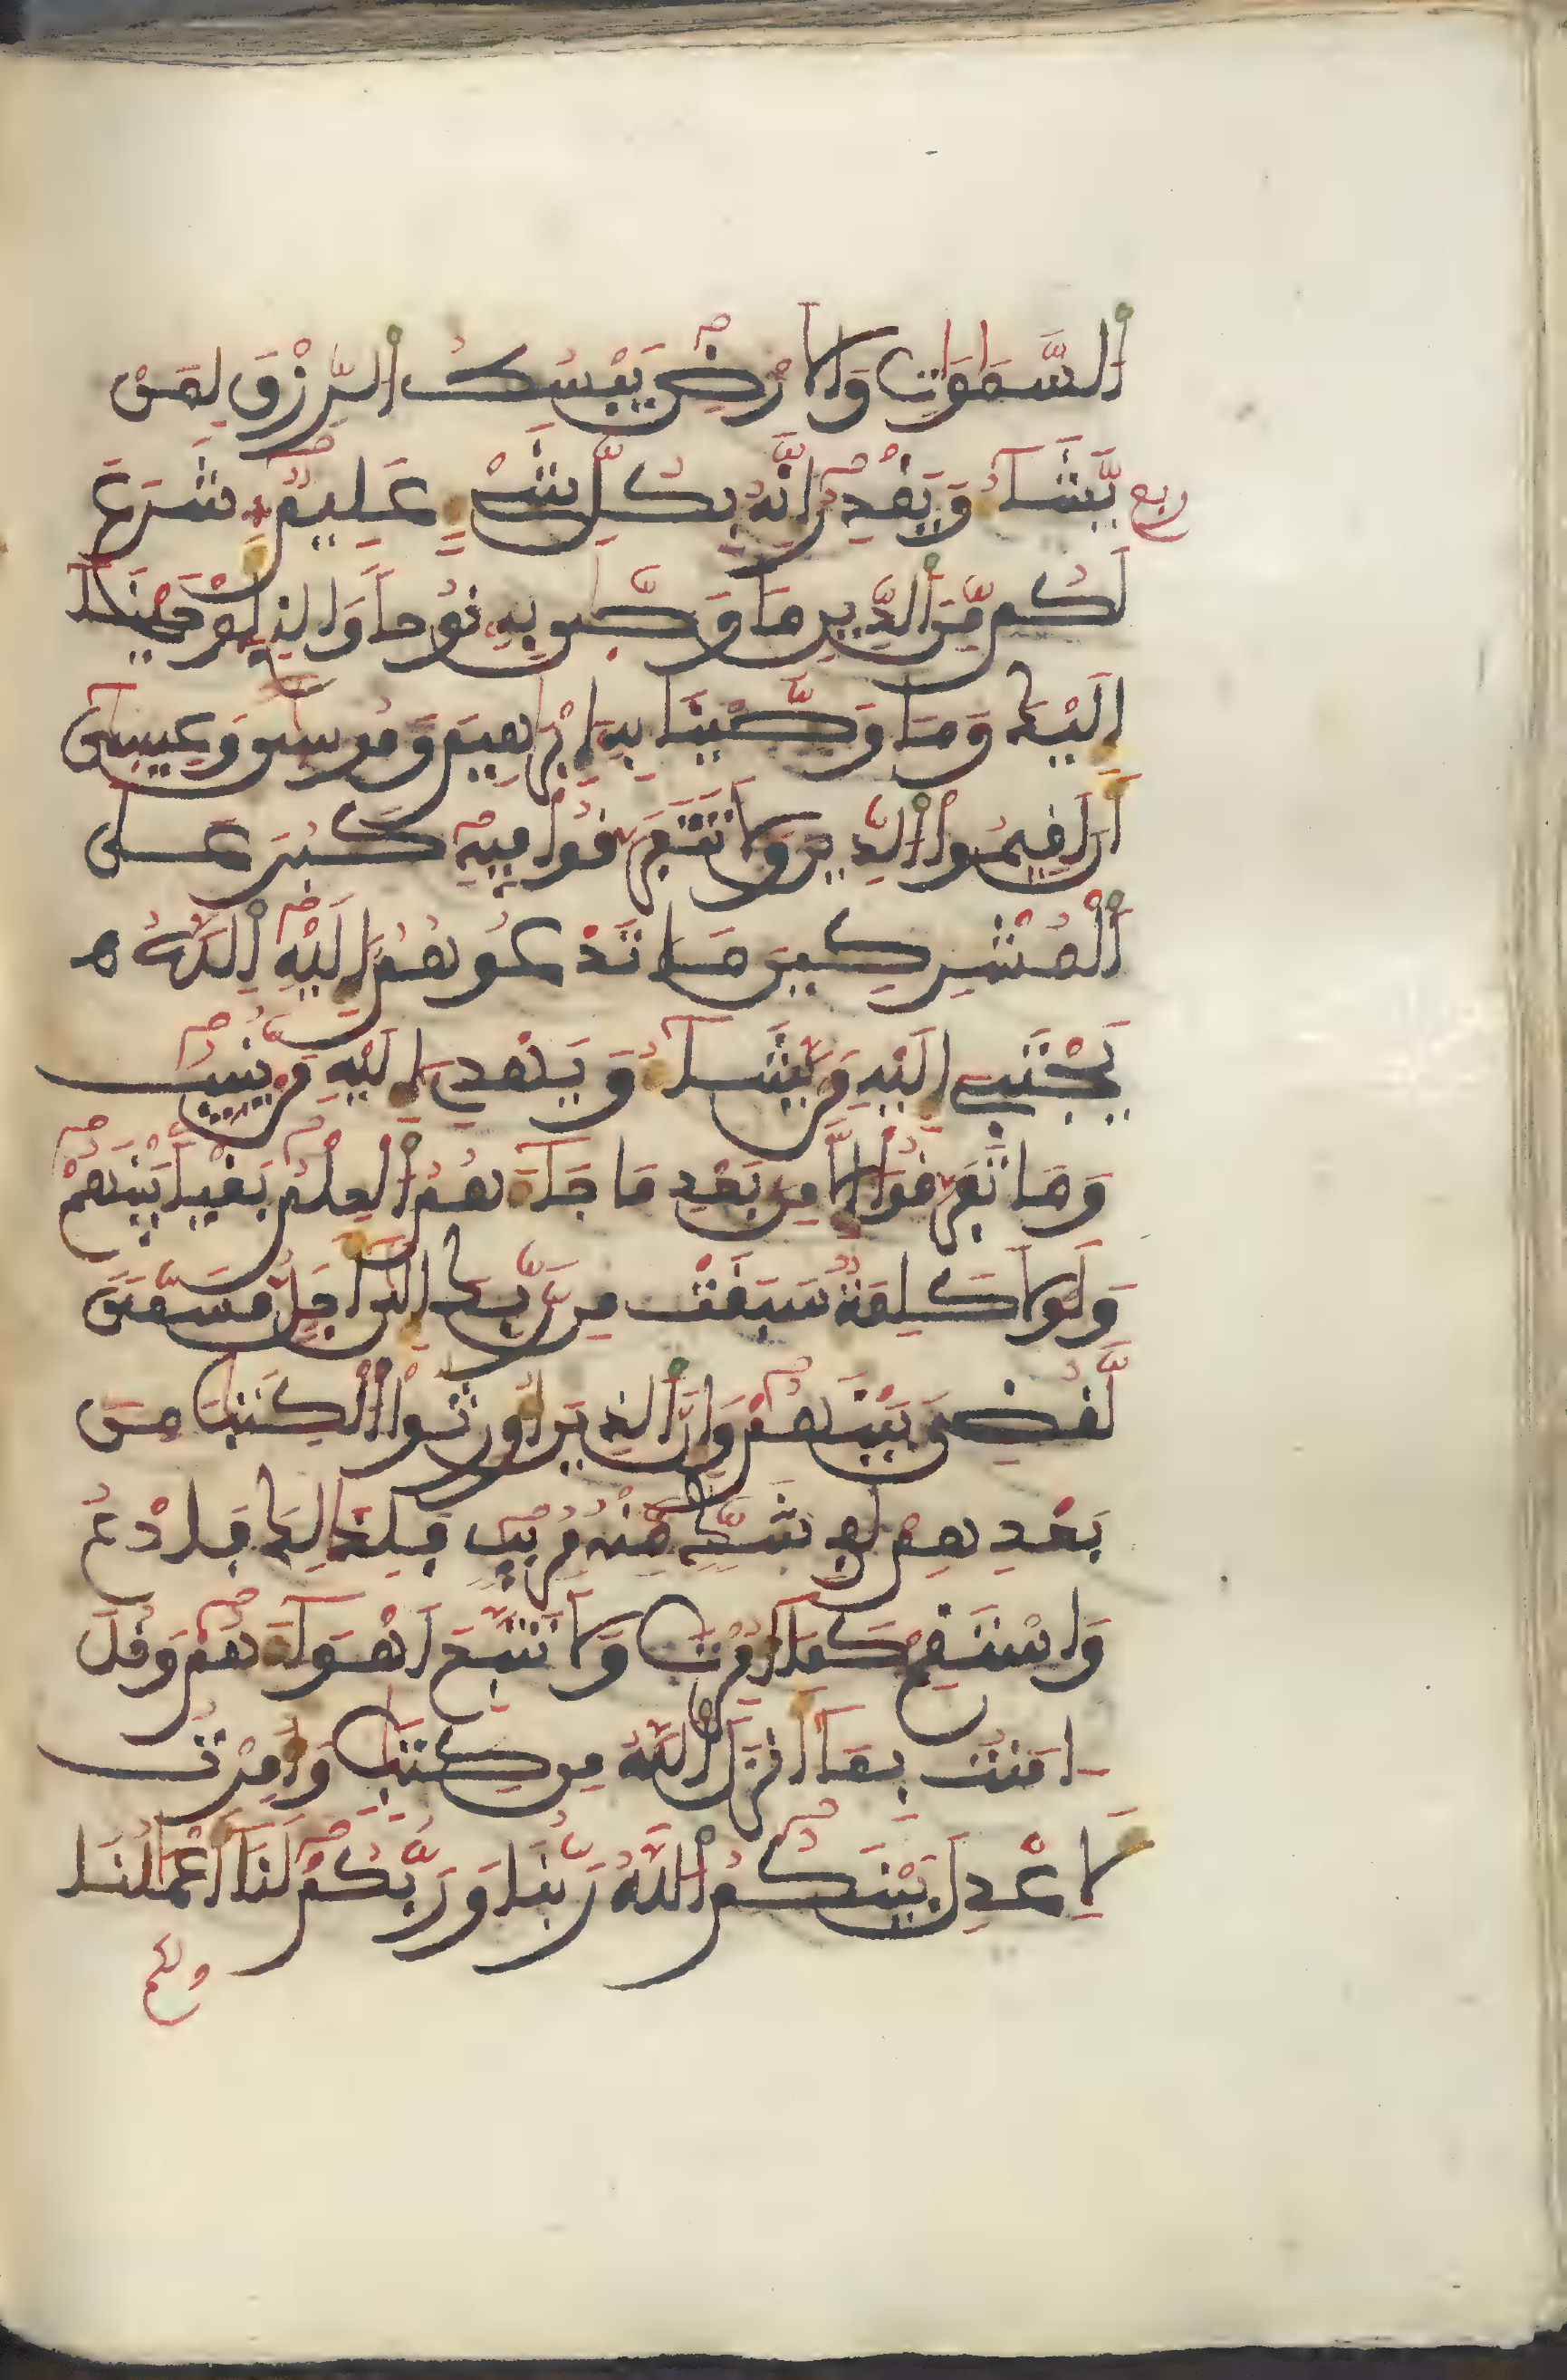 اَ۬لسَّمَٰوَٰتِ وَالَارْضِ يَبْسُطُ اُ۬لرِّزْقَ لِمَنْ
ربع يَّشَآءُ وَيَقْدِرُ إِنَّهُۥ بِكُلِّ شَےْءٍ عَلِيمٌ شَرَعَ
لَكُم مِّنَ اَ۬لدِّينِ مَا وَصّ۪ىٰ بِهِۦ نُوحاً وَالذِےٓ أَوْحَيْنَآ
إِلَيْكَ وَمَا وَصَّيْنَا بِهِۦٓ إِبْرَٰهِيمَ وَمُوس۪ىٰ وَعِيس۪ىٰٓ
أَنَ اَقِيمُوا۟ اُ۬لدِّينَ وَلَا تَتَفَرَّقُوا۟ فِيهِ كَبُرَ عَلَى
اَ۬لْمُشْرِكِينَ مَا تَدْعُوهُمُۥٓ إِلَيْهِ اِ۬للَّهُ ه
يَجْتَبِےٓ إِلَيْهِ مَنْ يَّشَآءُ وَيَهْدِےٓ إِلَيْهِ مَنْ يُّنِيبُ
وَمَا تَفَرَّقُوٓا۟ إِلَّا مِنۢ بَعْدِ مَا جَآءَهُمُ اُ۬لْعِلْمُ بَغْياَۢ بَيْنَهُمْ
وَلَوْلَا كَلِمَةٌ سَبَقَتْ مِن رَّبِّكَ إِلَىٰٓ أَجَلٍ مُّسَمّىٗ
لَّقُضِىَ بَيْنَهُمْ وَإِنَّ اَ۬لذِينَ أُورِثُوا۟ اُ۬لْكِتَٰبَ مِنۢ
بَعْدِهِمْ لَفِے شَكٍّ مِّنْهُ مُرِيبٍ فَلِذَٰلِكَ فَادْعُ
وَاسْتَقِمْ كَمَآ أُمِرْتَ وَلَا تَتَّبِعَ اَهْوَآءَهُمْ وَقُلَ
اٰمَنتُ بِمَآ أَنزَلَ اَ۬للَّهُ مِن كِتَٰبٍ وَأُمِرْتُ
لِأَعْدِلَ بَيْنَكُمُ اُ۬للَّهُ رَبُّنَا وَرَبُّكُمْ لَنَآ أَعْمَٰلُنَا
ولكم